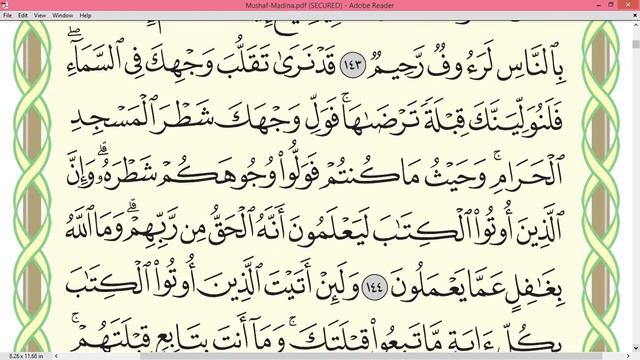 Mushaf-Madina.pdf (SECURED) - Adobe Reader
File Edit View Window Help
بِٱلنَّاسِ لَرَءُوفٌ رَّحِيمٌ ١٤٣ قَدْ نَرَىٰ تَقَلُّبَ وَجْهِكَ فِى ٱلسَّمَآءِ ۖ
فَلَنُوَلِّيَنَّكَ قِبْلَةً تَرْضَىٰهَا ۚ فَوَلِّ وَجْهَكَ شَطْرَ ٱلْمَسْجِدِ
ٱلْحَرَامِ ۚ وَحَيْثُ مَا كُنتُمْ فَوَلُّوا۟ وُجُوهَكُمْ شَطْرَهُۥ ۗ وَإِنَّ
ٱلَّذِينَ أُوتُوا۟ ٱلْكِتَـٰبَ لَيَعْلَمُونَ أَنَّهُ ٱلْحَقُّ مِن رَّبِّهِمْ ۗ وَمَا ٱللَّهُ
بِغَـٰفِلٍ عَمَّا يَعْمَلُونَ ١٤٤ وَلَئِنْ أَتَيْتَ ٱلَّذِينَ أُوتُوا۟ ٱلْكِتَـٰبَ
بِكُلِّ ءَايَةٍ مَّا تَبِعُوا۟ قِبْلَتَكَ ۚ وَمَآ أَنتَ بِتَابِعٍ قِبْلَتَهُمْ ۚ
8.26 x 11.68 in